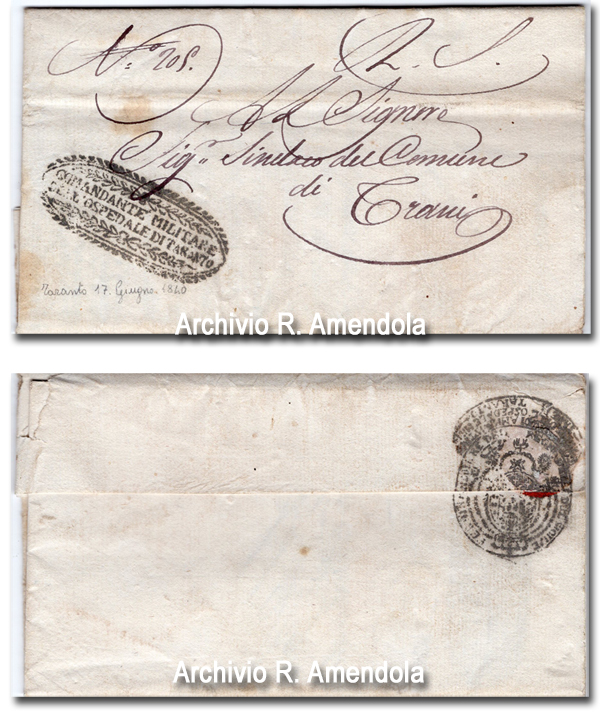 N.º 205. R. S.
Al Signore
Sig.r Sindaco del Comune
di
Trani
COMANDANTE MILITARE
DELL'OSPEDALE DI TARANTO
Taranto 17. Giugno 1820
Archivio R. Amendola
Archivio R. Amendola